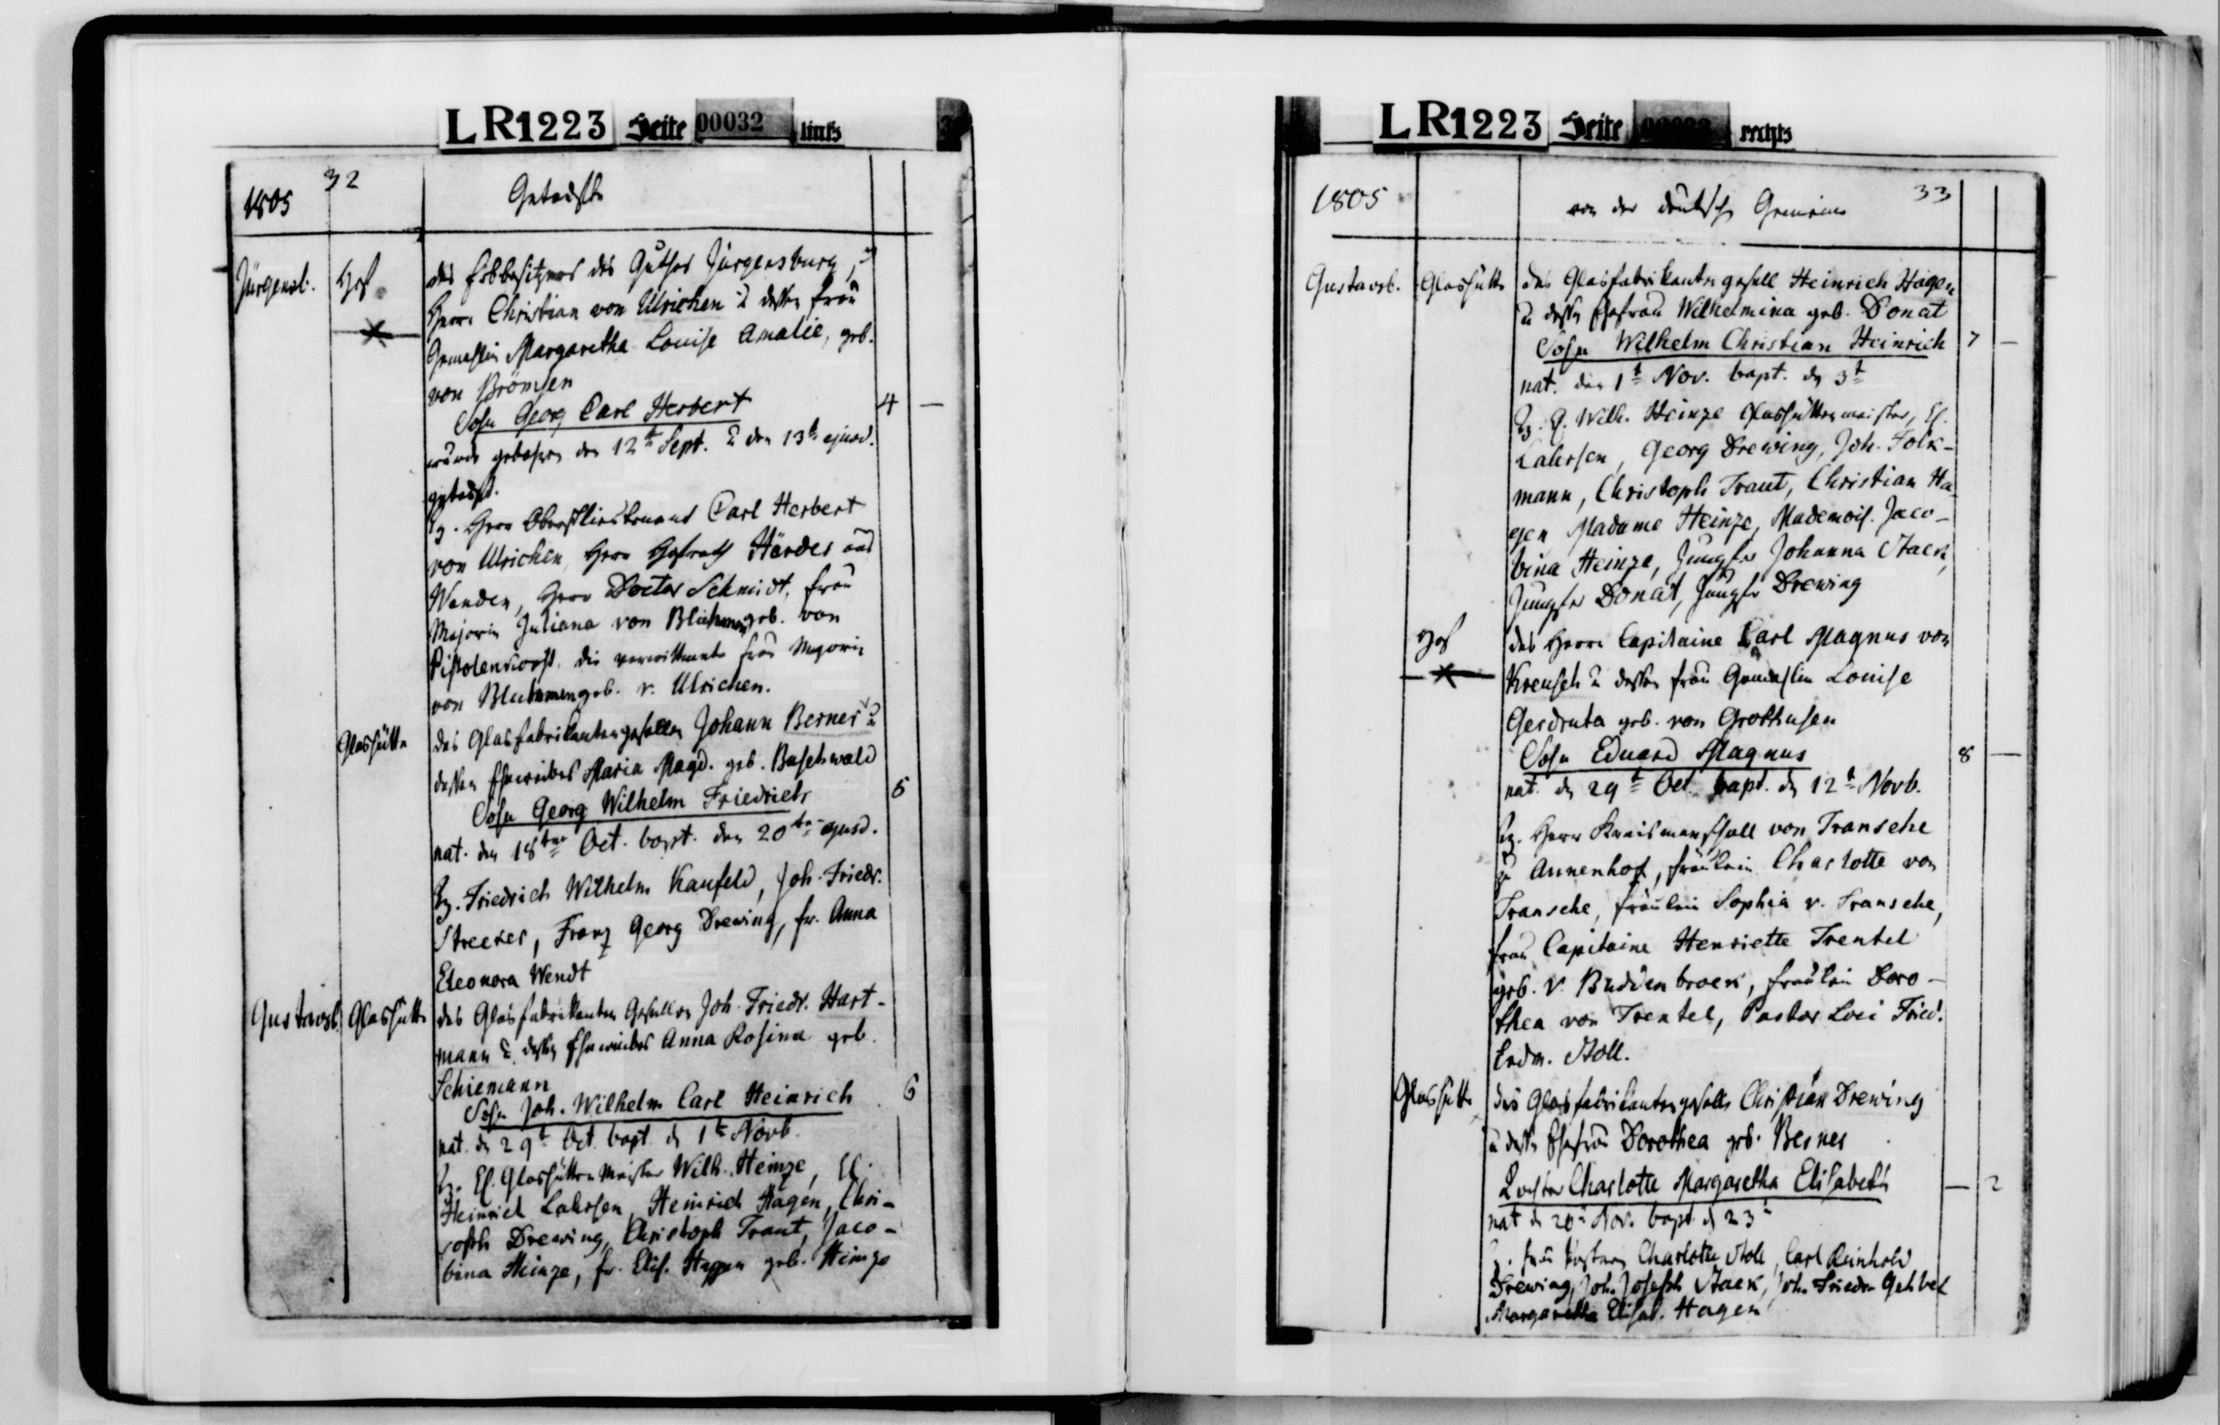 LR1223 Seite 00032 links
1805 32 Getaufte
Jürgensb. Hof des Erbbesitzers des Guthes Jürgensburg,
Herrn Christian von Ulrichen u dessen Frau
Gemahlin Margaretha Louise Amalie, geb.
von Brömsen
Sohn Georg Carl Herbert 4 —
wurde gebohren den 12t Sept. u den 13t ejusd.
getauft.
Tz. Herr Obristlieutenant Carl Herbert
von Ulrichen, Herr Hofrath Härder aus
Wenden, Herr Doctor Schmidt, Frau
Majorin Juliana von Blumen geb. von
Pistolenkors, die verwittwete Frau Majorin
von Blumen geb. v. Ulrichen.
Glashütte des Glasfabrikantengesellen Johann Berner u
dessen Eheweibes Maria Magd. geb. Buschwald
Sohn Georg Wilhelm Friedrich 5
nat. den 18ten Oct. bapt. den 20ten ejusd.
Tz. Friedrich Wilhelm Kaufeld, Joh. Friedr.
Streeker, Franz Georg Drewing, fr. Anna
Eleonora Wendt
Gustavsb. Glashütte des Glasfabrikanten Gesellen Joh. Friedr. Hart-
mann u. dessen Eheweibes Anna Rosina geb.
Schiemann
Sohn Joh. Wilhelm Carl Heinrich 6
nat. d 29t Oct. bapt. d 1t Novb.
Tz. H. Glashütten Meister Wilh. Heinze,
Heinrich Lahrsen, Heinrich Hagen, Chri-
stoph Drewing, Christoph Traut, Jaco-
bina Heinze, fr. Elis. Hagen geb. Heinze
LR1223 Seite rechts
1805 von der deutschen Gemeine 33
Gustavsb. Glashütte des Glasfabrikantengesell Heinrich Hagen
u dessen Ehefrau Wilhelmina geb. Donat
Sohn Wilhelm Christian Heinrich 7 —
nat. den 1t Nov. bapt. den 3t
Tz. H. Wilh. Heinze Glashüttenmeister, H.
Lahrsen, Georg Drewing, Joh. Folk-
mann, Christoph Traut, Christian Ha-
gen Madame Heinze, Mademois. Jaco-
bina Heinze, Jungfer Johanna Stack,
Jungfer Donat, Jungfr Drewing
Hof des Herrn Capitaine Carl Magnus von
Kreusch u dessen Frau Gemahlin Louise
Gerdruta geb. von Grothusen
Sohn Eduard Magnus 8 —
nat. d 29t Oct. bapt. d 12t Novb.
Tz. Herr Kreismarschall von Transehe
zu Annenhof, Fräulein Charlotte von
Transehe, Fräulein Sophia v. Transehe,
Frau Capitaine Henriette Trentel
geb. v. Buddenbrock, Fräulein Doro-
thea von Trentel, Pastor Loci Fried.
Ludw. Stoll.
Glashütte des Glasfabrikantengesells Christian Drewing
u dessen Ehefrau Dorothea geb. Berner
Tochter Charlotta Margaretha Elisabeth — 2
nat d 20t Nov. bapt. d 23t
Tz. Frau Pastorin Charlotte Stoll, Carl Reinhold
Drewing, Joh. Joseph Stack, Joh. Friedr. Gehbel
Margaretha Elisab. Hagen